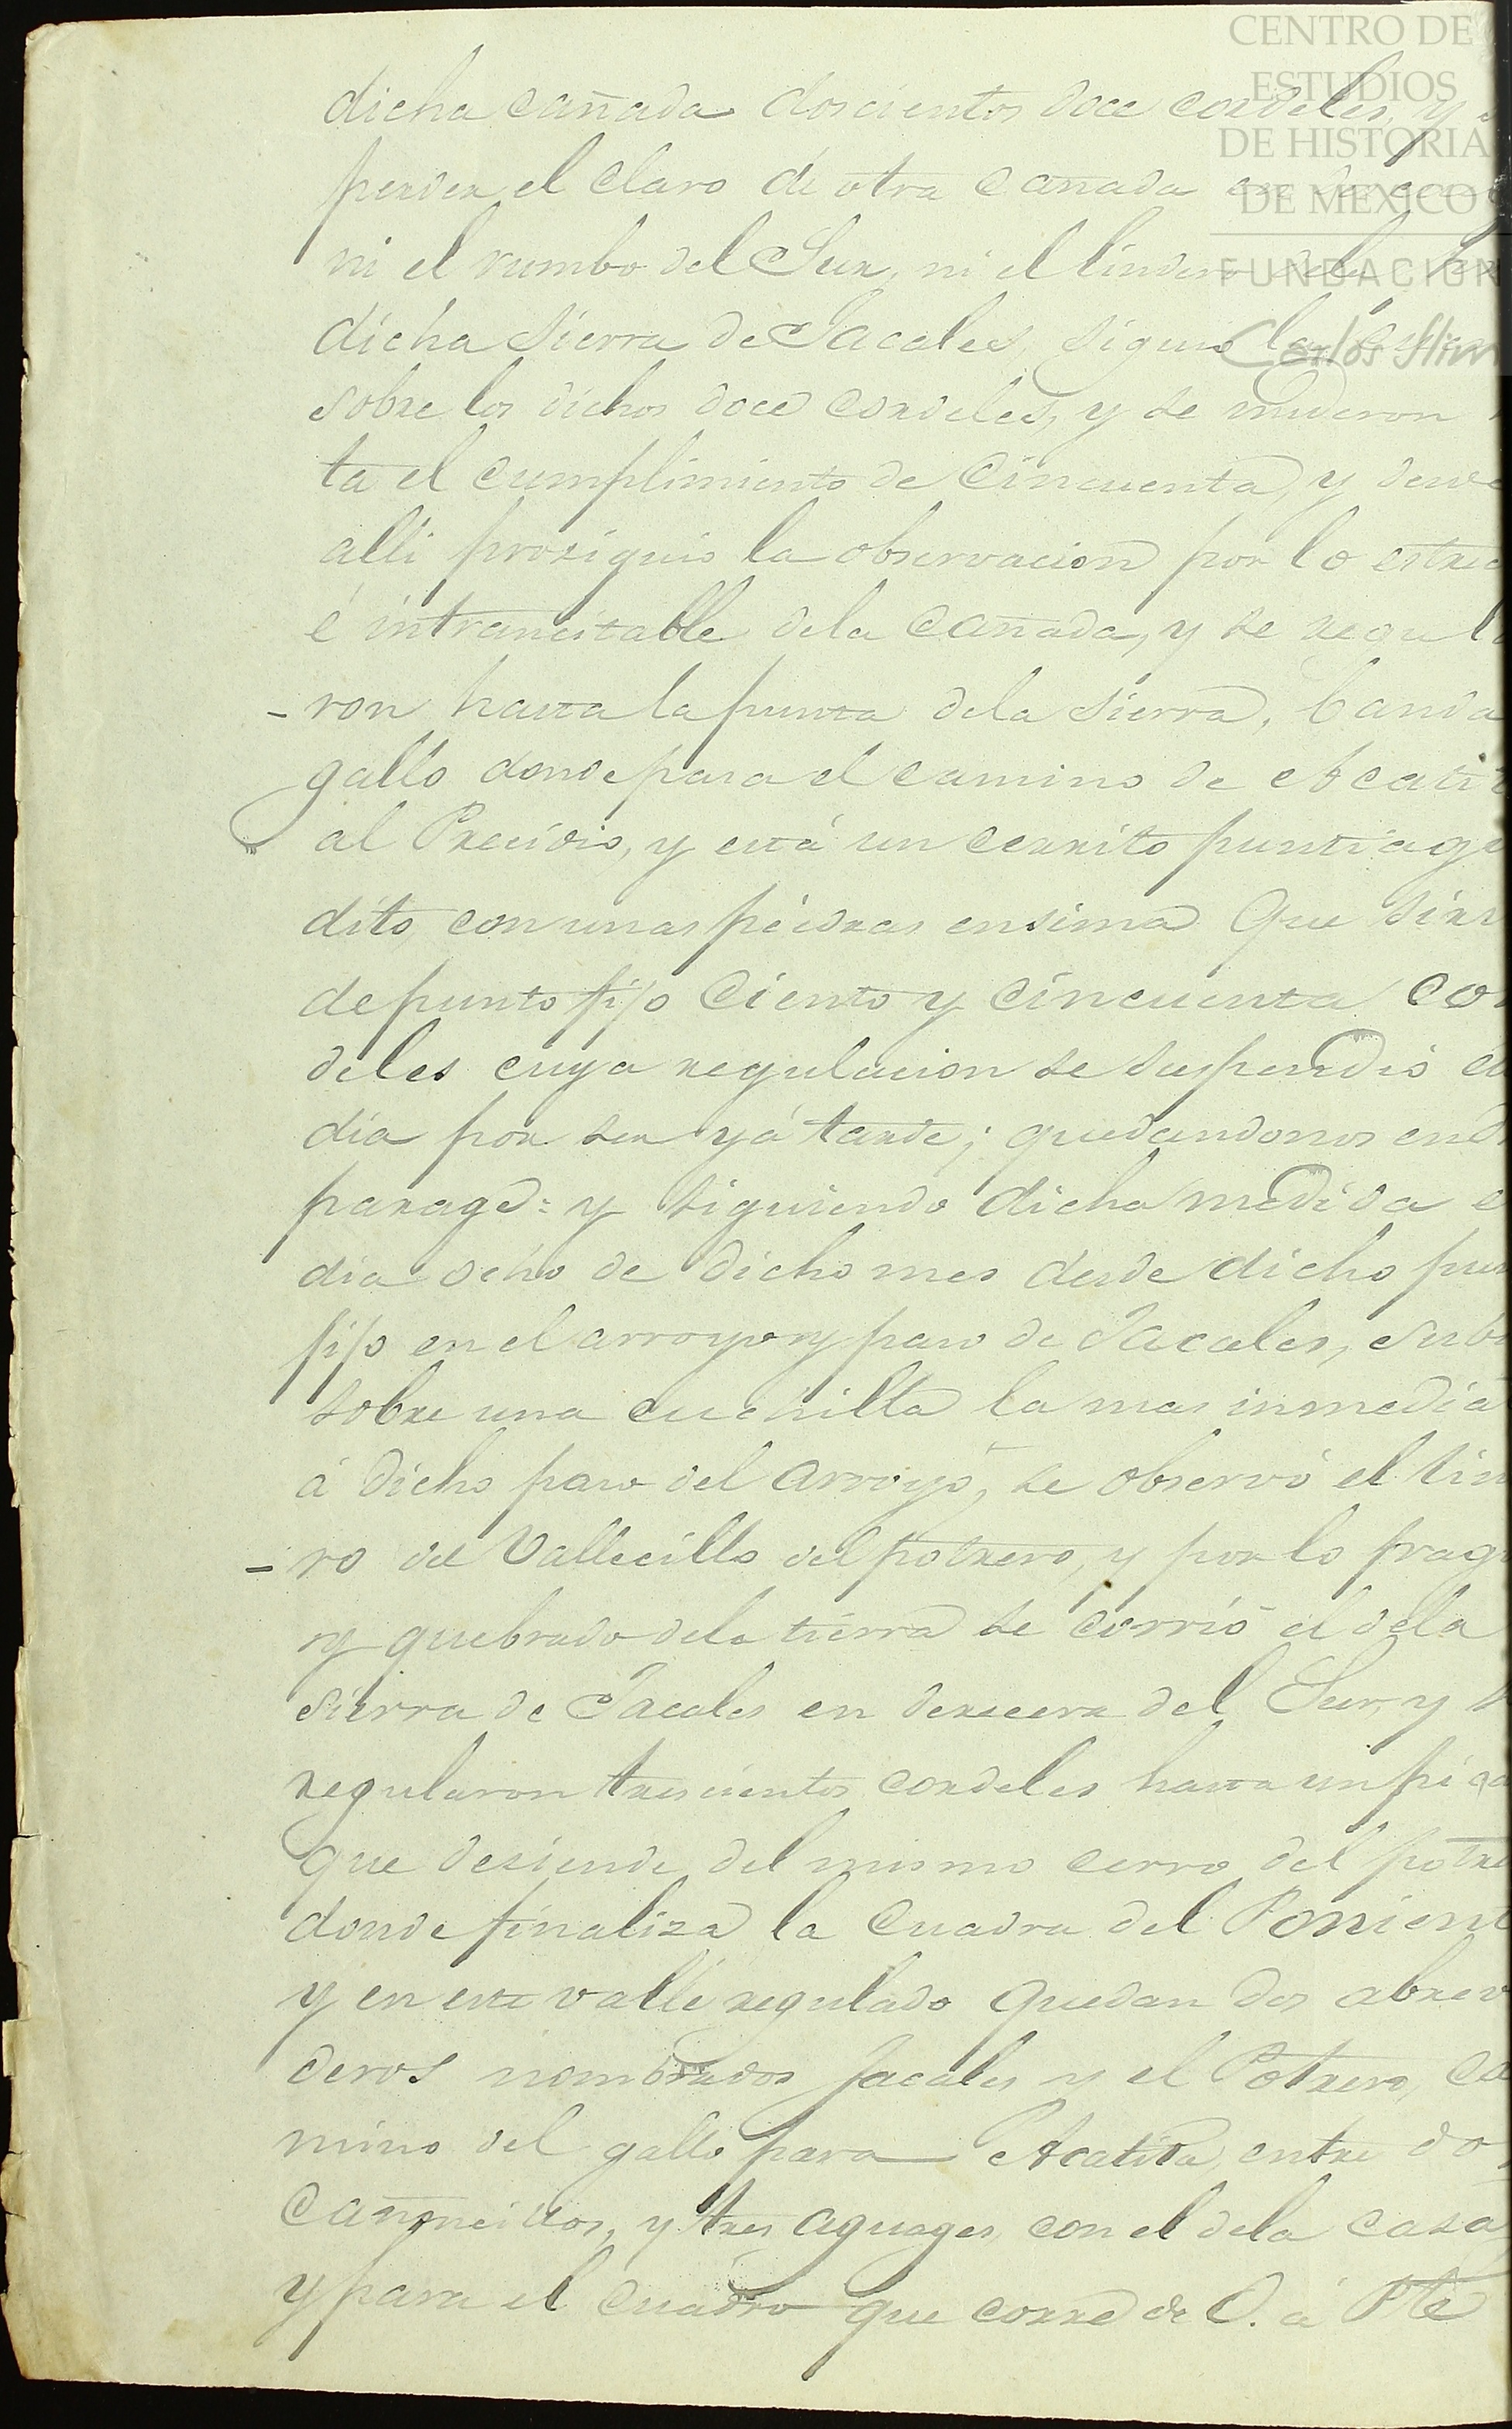 CENTRO DE
ESTUDIOS
DE HISTORIA
DE MEXICO
FUNDACION
Carlos Slim
dicha cañada doscientos doce cordeles, y
perder el claro de otra cañada
ni el rumbo del Sur, ni el lindero
dicha Sierra de Jacales, siguió la
sobre los dichos doce cordeles, y se midieron
ta el cumplimiento de cincuenta, y desde
alli prosiguio la observacion por lo estrec
é intransitable dela cañada, y se regula
-ron hasta la punta dela Sierra, banda
gallo donde pasa el camino de Acatit
al Precidio, y está un cerrito puntiagu
dito con unas piedras ensima que sirv
de punto fijo ciento y cincuenta cor
deles cuya regulacion se suspendió e
dia por ser yá tarde; quedandonos en
parage: y siguiendo dicha medida e
dia ocho de dicho mes desde dicho pun
fijo en el arroyo y paso de Jacales, subi
sobre una cuchilla la mas inmedia
á dicho paso del arroyo, se observó el lin
-ro del Vallecillo del potrero, y por lo frag
y quebrado dela tierra se corrió el dela
Sierra de Jacales en derecera del Sur, y
regularon trescientos cordeles hasta un pica
que desiende del mismo cerro del potre
donde finaliza la cuadra del Ponient
y en este valle regulado quedan dos abrev
deros nombrados Jacales y el Potrero, ca
mino del gallo para Acatita, entre do
cañoncitos, y tres aguages, con el dela casa,
y para el cuadro que corre de O. á Pte